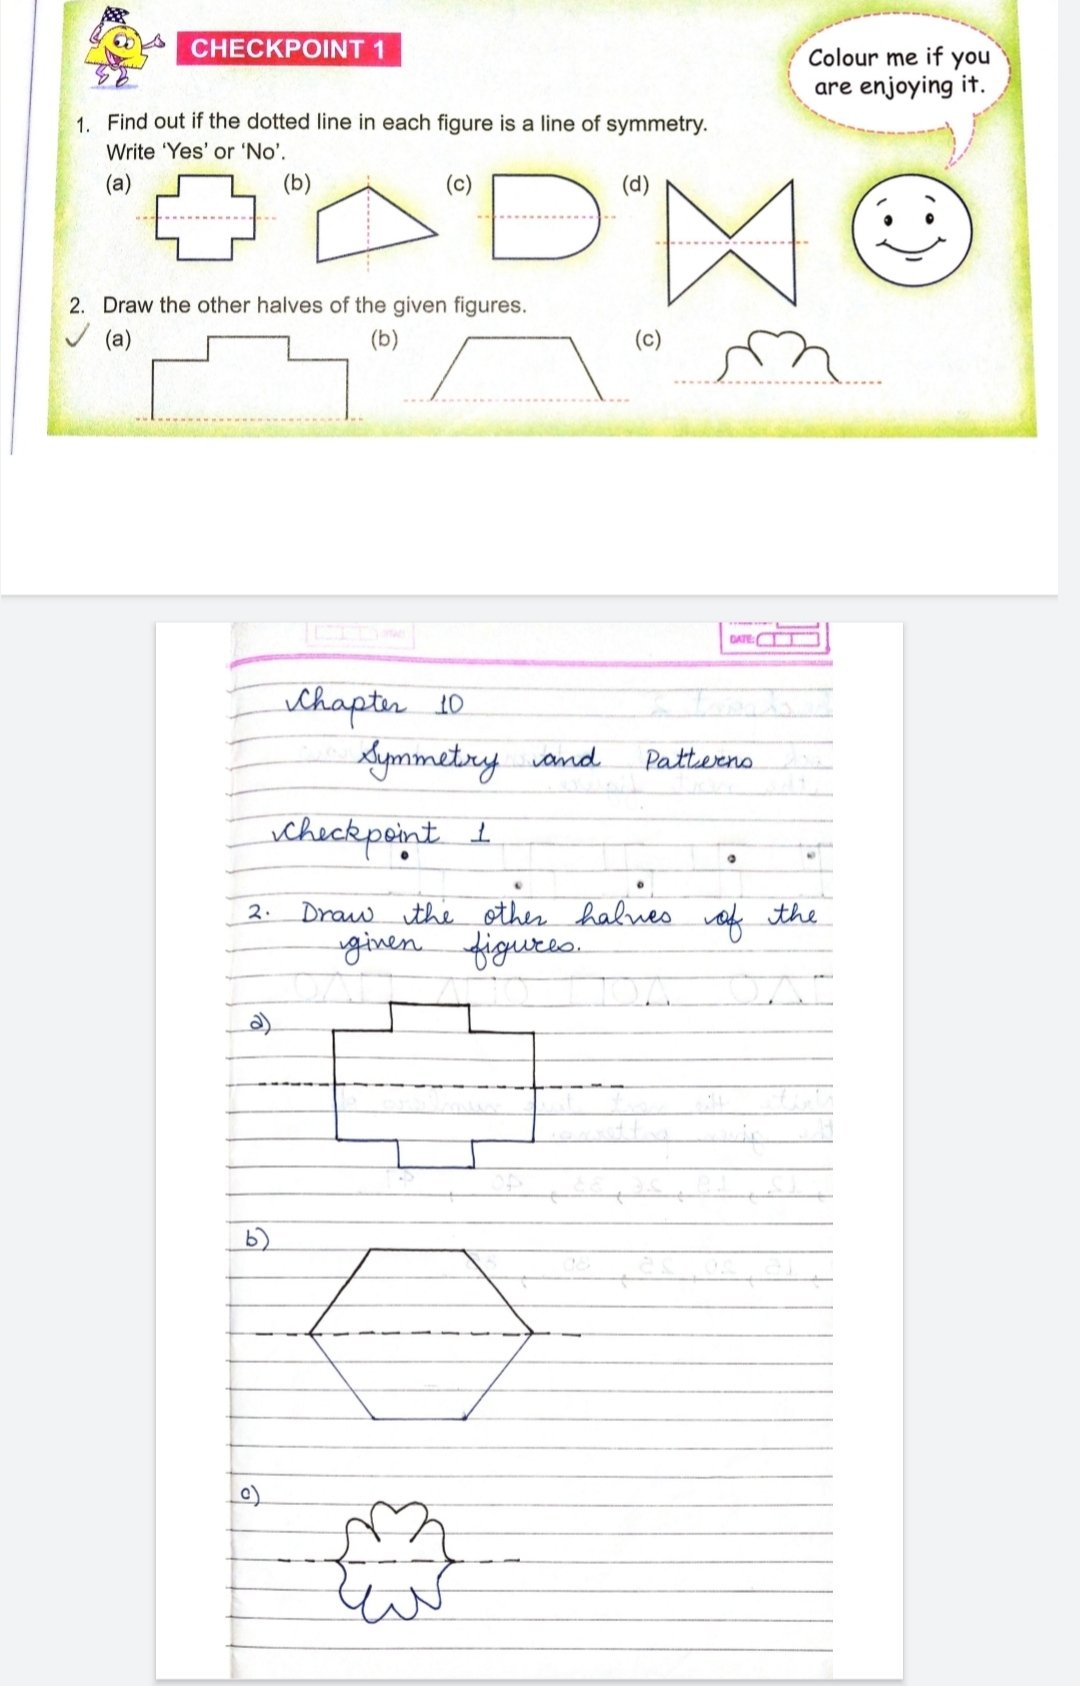 CHECKPOINT 1
Colour me if you
are enjoying it.
1. Find out if the dotted line in each figure is a line of symmetry.
Write 'Yes' or 'No'.
(a) (b) (c) (d)
2. Draw the other halves of the given figures.
(a) (b) (c)
DATE:
Chapter 10
Symmetry and Patterns
Checkpoint 1
2. Draw the other halves of the
given figures.
a)
b)
c)